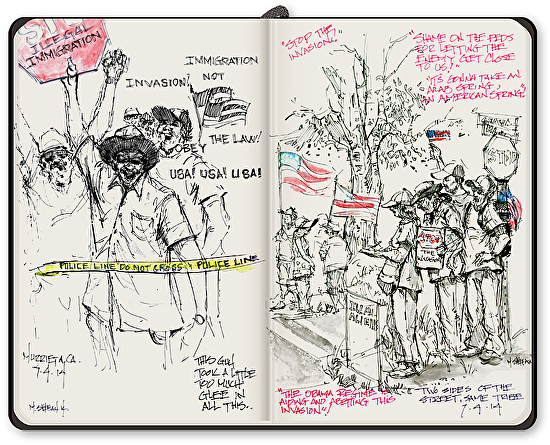 STOP
ILLEGAL
IMMIGRATION
INVASION!
IMMIGRATION
NOT
OBEY
THE LAW!
USA! USA! USA!
POLICE LINE DO NOT CROSS POLICE LINE
MURRIETA, CA.
7.4.14
THIS GUY
TOOK A LITTLE
TOO MUCH
GLEE IN
ALL THIS..
"STOP THE
INVASION!"
"SHAME ON THE FEDS
FOR LETTING THE
ENEMY GET CLOSE
TO US!"
"IT'S GONNA TAKE AN
ARAB SPRING,
AN AMERICAN SPRING"
STOP
THE
"THE OBAMA REGIME IS
AIDING AND ABETTING THIS
INVASION"!
TWO SIDES OF THE
STREET, SAME TREE
7.4.14